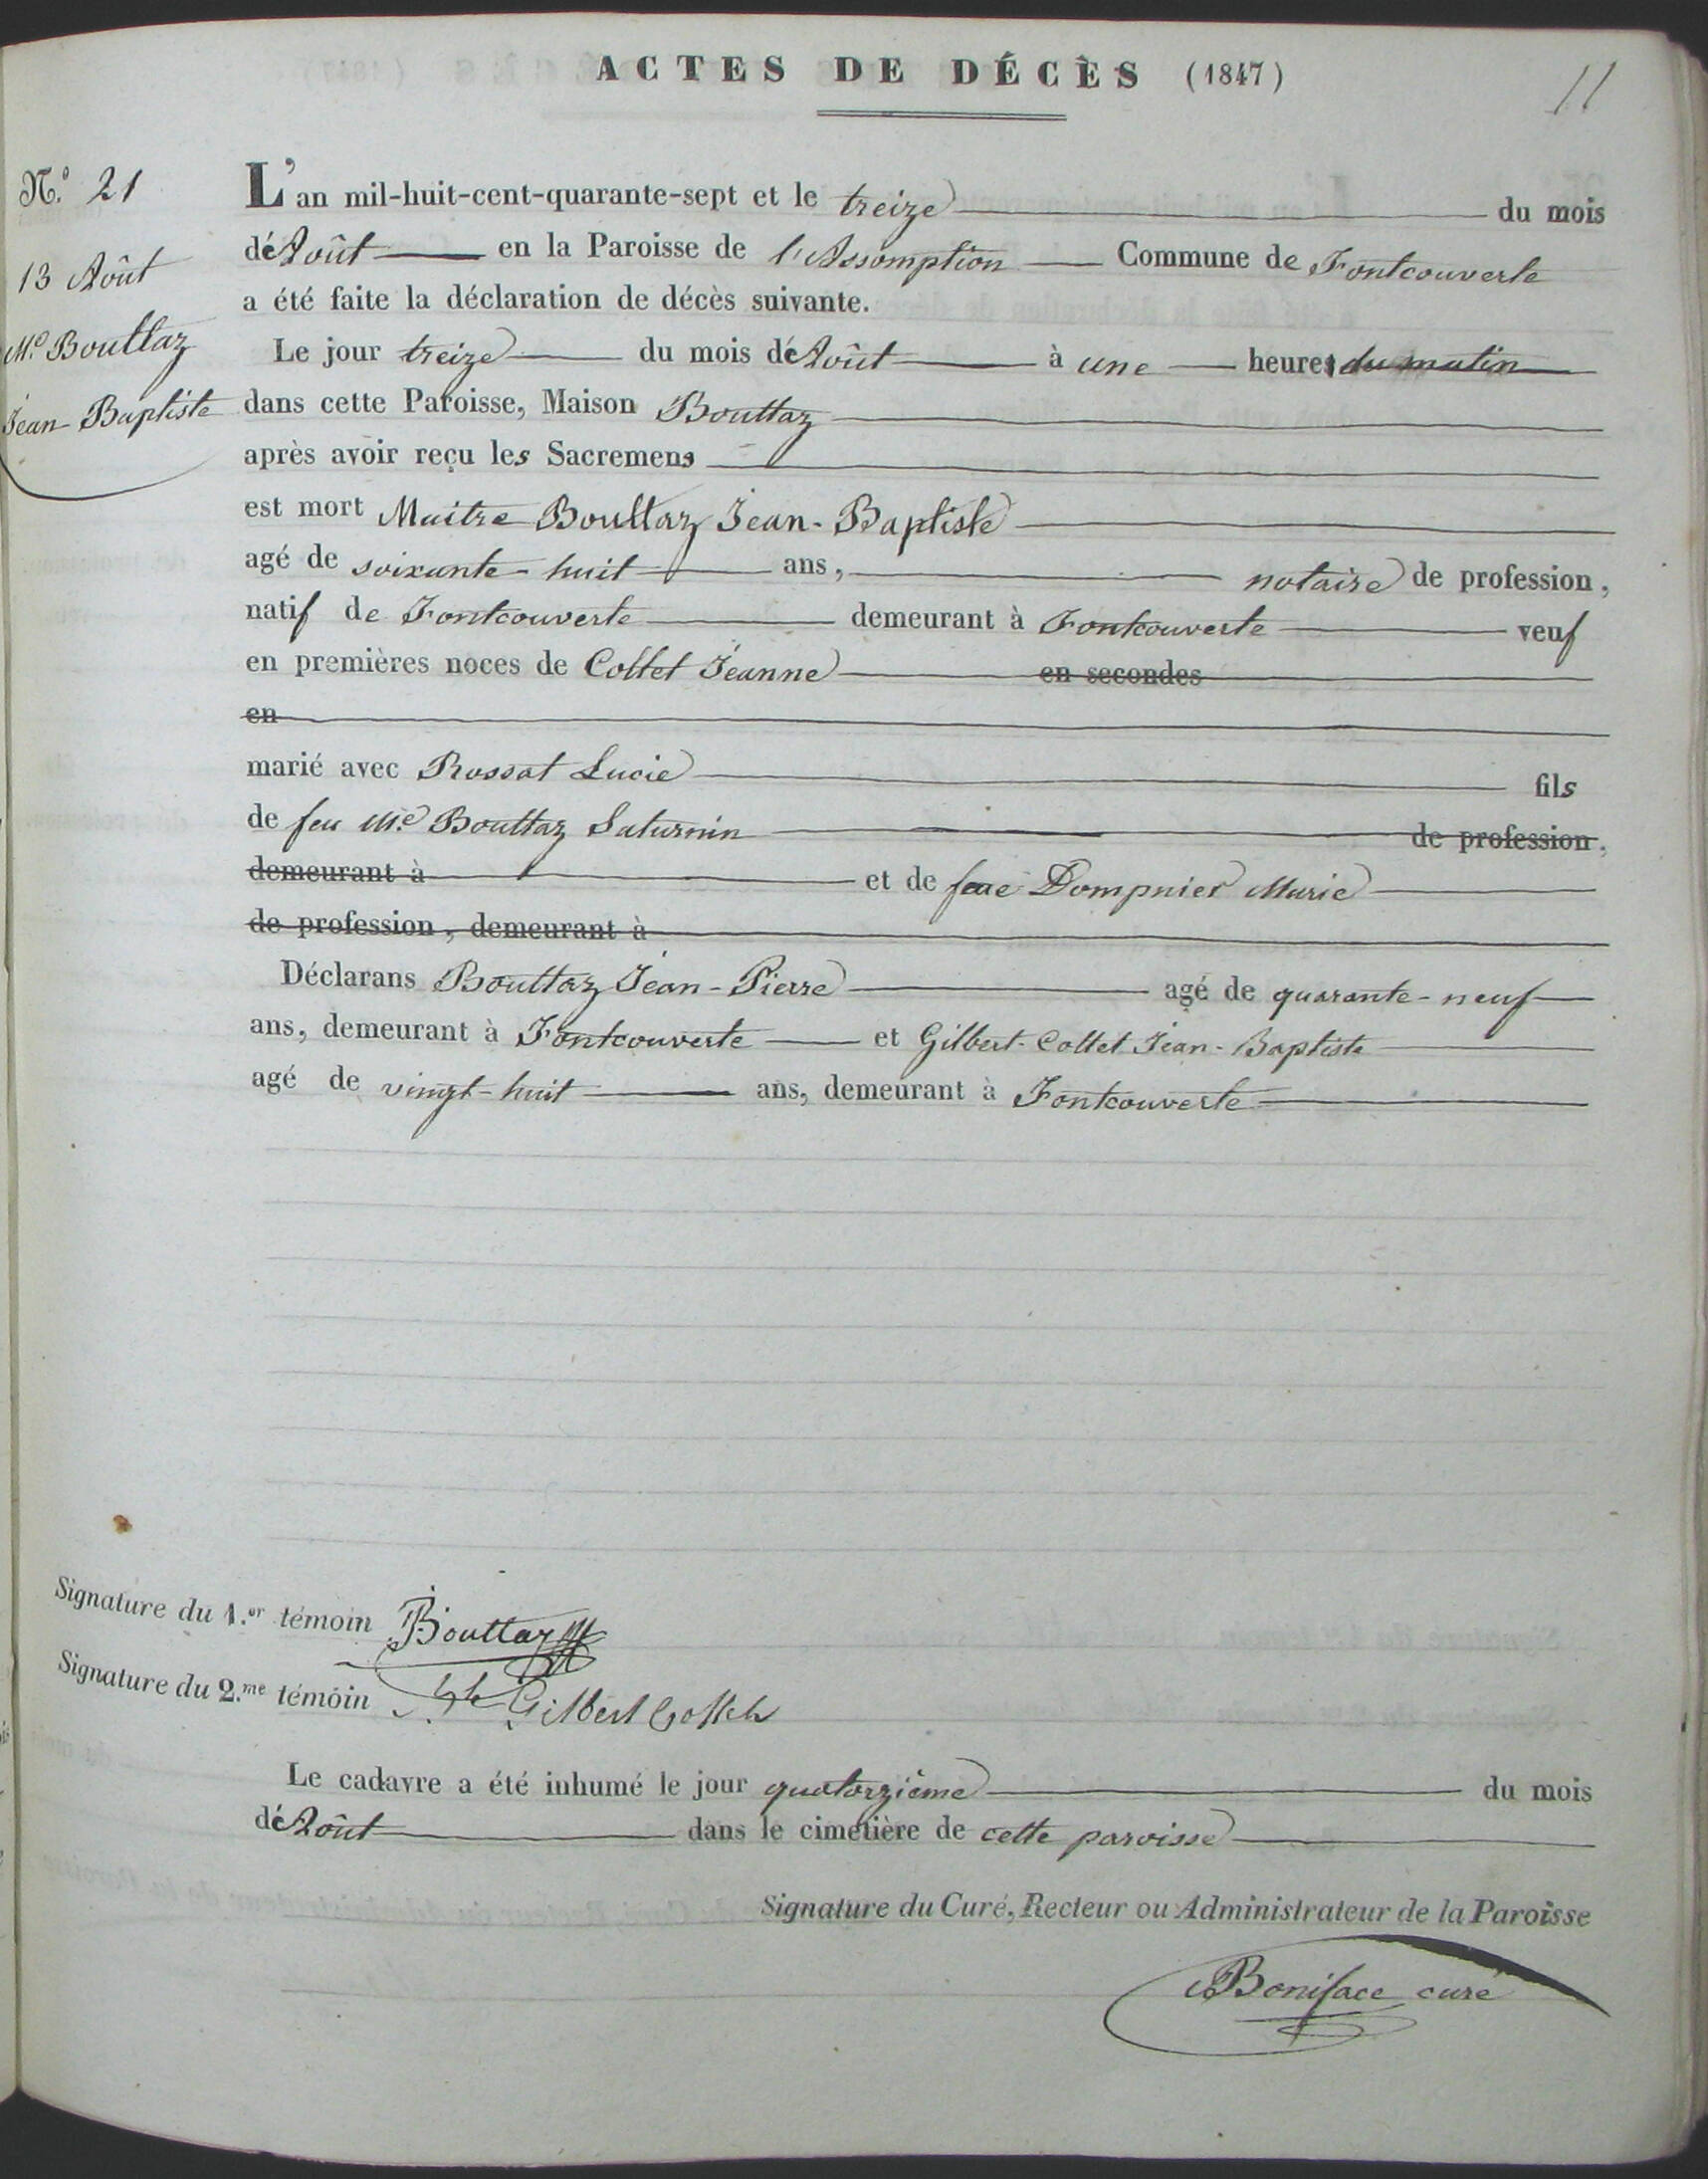 ACTES DE DÉCÈS (1847)
11
N.º 21
13 Août
M.e Bouttaz
Jean-Baptiste
L'an mil-huit-cent-quarante-sept et le treize du mois
d'Août en la Paroisse de l'Assomption Commune de Fontcouverte
a été faite la déclaration de décès suivante.
Le jour treize du mois d'Août à une heure du matin
dans cette Paroisse, Maison Bouttaz
après avoir reçu les Sacremens
est mort Maitre Bouttaz Jean-Baptiste
agé de soixante-huit ans, notaire de profession,
natif de Fontcouverte demeurant à Fontcouverte veuf
en premières noces de Collet Jeanne en secondes
en
marié avec Rossat Lucie fils
de feu M.e Bouttaz Saturnin de profession,
demeurant à et de feue Dompnier Marie
de profession, demeurant à
Déclarans Bouttaz Jean-Pierre agé de quarante-neuf
ans, demeurant à Fontcouverte et Gilbert-Collet Jean-Baptiste
agé de vingt-huit ans, demeurant à Fontcouverte
Signature du 1.er témoin Bouttaz
Signature du 2.me témoin Gilbert Collet
Le cadavre a été inhumé le jour quatorzième du mois
d'Août dans le cimetière de cette paroisse
Signature du Curé, Recteur ou Administrateur de la Paroisse
Boniface curé